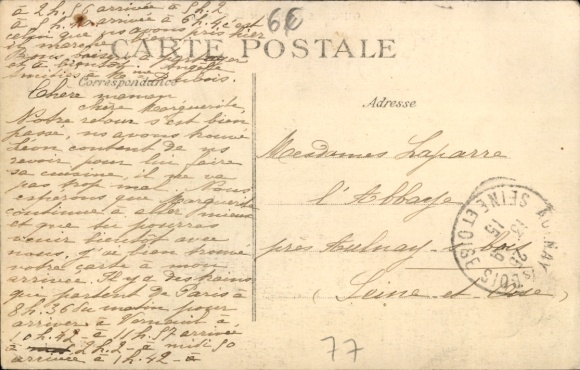 à 2h.56 arrivée à 5h.2
à 5h. arrivée à 6h.4 c'est
celui que ns avons pris hier
du marché
Bons baisers à partager
et à bientôt
amitiés à Dubois.
66
CARTE POSTALE
Correspondance
Adresse
Chère maman
Chère Marguerite,
Notre retour s'est bien
passé, ns avons trouvé
Léon content de ns
revoir pour lui faire
sa cuisine, il ne va
pas trop mal. Nous
espérons que Marguerite
continue à aller mieux
et que tu pourras
venir bientôt avec
nous, j'ai bien trouvé
votre carte à mon
arrivée. Il y a des trains
que partent de Paris à
8h.36 du matin pour
arriver à Vernouil à
10h.42 - à 11h.57 arrivée
à 2h.2 - à midi 50
arrivée à 1h.42 - à
Mesdames Laparre
l'Abbaye
près Aulnay-s-bois
(Seine et Oise)
AULNAY-s-BOIS
SEINE ET OISE
15
77